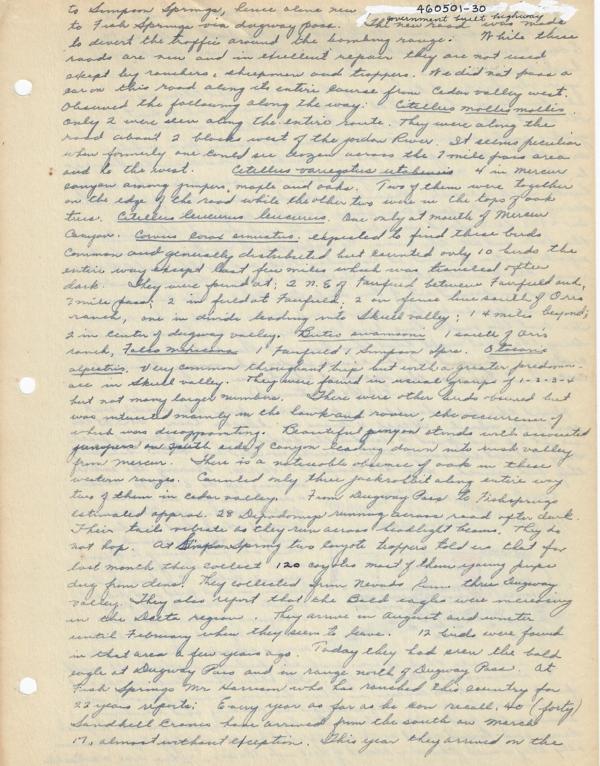 460501-30
to Simpson Springs, hence alone new
government built highway
to Fish Springs via dugway pass. The new road was made
to divert the traffic around the bombing range. While these
roads are new and in excellent repair they are not used
except by ranchers, sheepmen and trappers. We did not pass a
car on this road along its entire course from Cedar valley west.
Observed the following along the way: Citellus mollis mollis.
Only 2 were seen along the entire route. They were along the
road about 2 blocks west of the Jordan River. It seems peculiar
when formerly one could see dozens across the 7 mile pass area
and to the west. Citellus variegatus utahensis 4 in Mercur
canyon among junipers, maple and oaks. Two of them were together
on the edge of the road while the other two were in the tops of oak
trees. Citellus leucurus leucurus. One only at mouth of Mercur
Canyon. Corvus corax sinuatus. expected to find these birds
common and generally distributed but counted only 10 birds the
entire way except last few miles which was traveled after
dark. They were found at: 2 N.E of Fairfield between Fairfield and
7 mile pass; 2 in field at Fairfield; 2 on fence line south of Orrs
ranch, one in divide leading into Skull valley; 1 4 miles beyond;
2 in center of dugway valley. Buteo swainsoni 1 south of Orrs
ranch, Falco mexicanus 1 Fairfield 1 Simpson Sprs. Otocoris
alpestris. Very common throughout trip but with a greater predomin-
ance in Skull valley. They were found in usual groups of 1-2-3-4
but not many larger numbers. There were other birds observed but
was interested mainly in the hawk and raven, the occurrence of
which was disappointing. Beautiful pinyon stands with associated
junipers on south side of canyon leading down into rush valley
from Mercur. There is a noticeable absence of oak in these
western ranges. Counted only three jackrabbits along entire way
two of them in Cedar valley. From Dugway Pass to Fish springs
estimated approx. 28 Dipodomys running across road after dark.
Their tails vibrate as they run across headlight beams. They do
not hop. At Simpson Spring two coyote trappers told us that for
last month they collect 120 coyotes most of them young pups
dug from dens. They collected from Nevada line thru Dugway
valley. They also report that the Bald eagles were increasing
in the Delta region. They arrive in August and winter
until February when they seem to leave. 12 birds were found
in that area a few years ago. Today they had seen the bald
eagle at Dugway Pass and in range north of Dugway Pass. At
Fish Springs Mr Harrison who has ranched this country for
22 years reports: Every year as far as he can recall, 40 (forty)
Sandhill Cranes have arrived from the south on March
17, almost without exception. This year they arrived on the